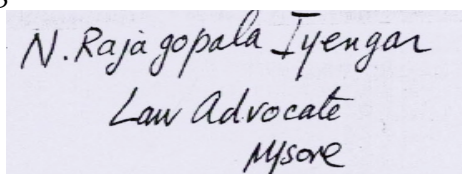 N. Rajagopala Iyengar
Law Advocate
Mysore